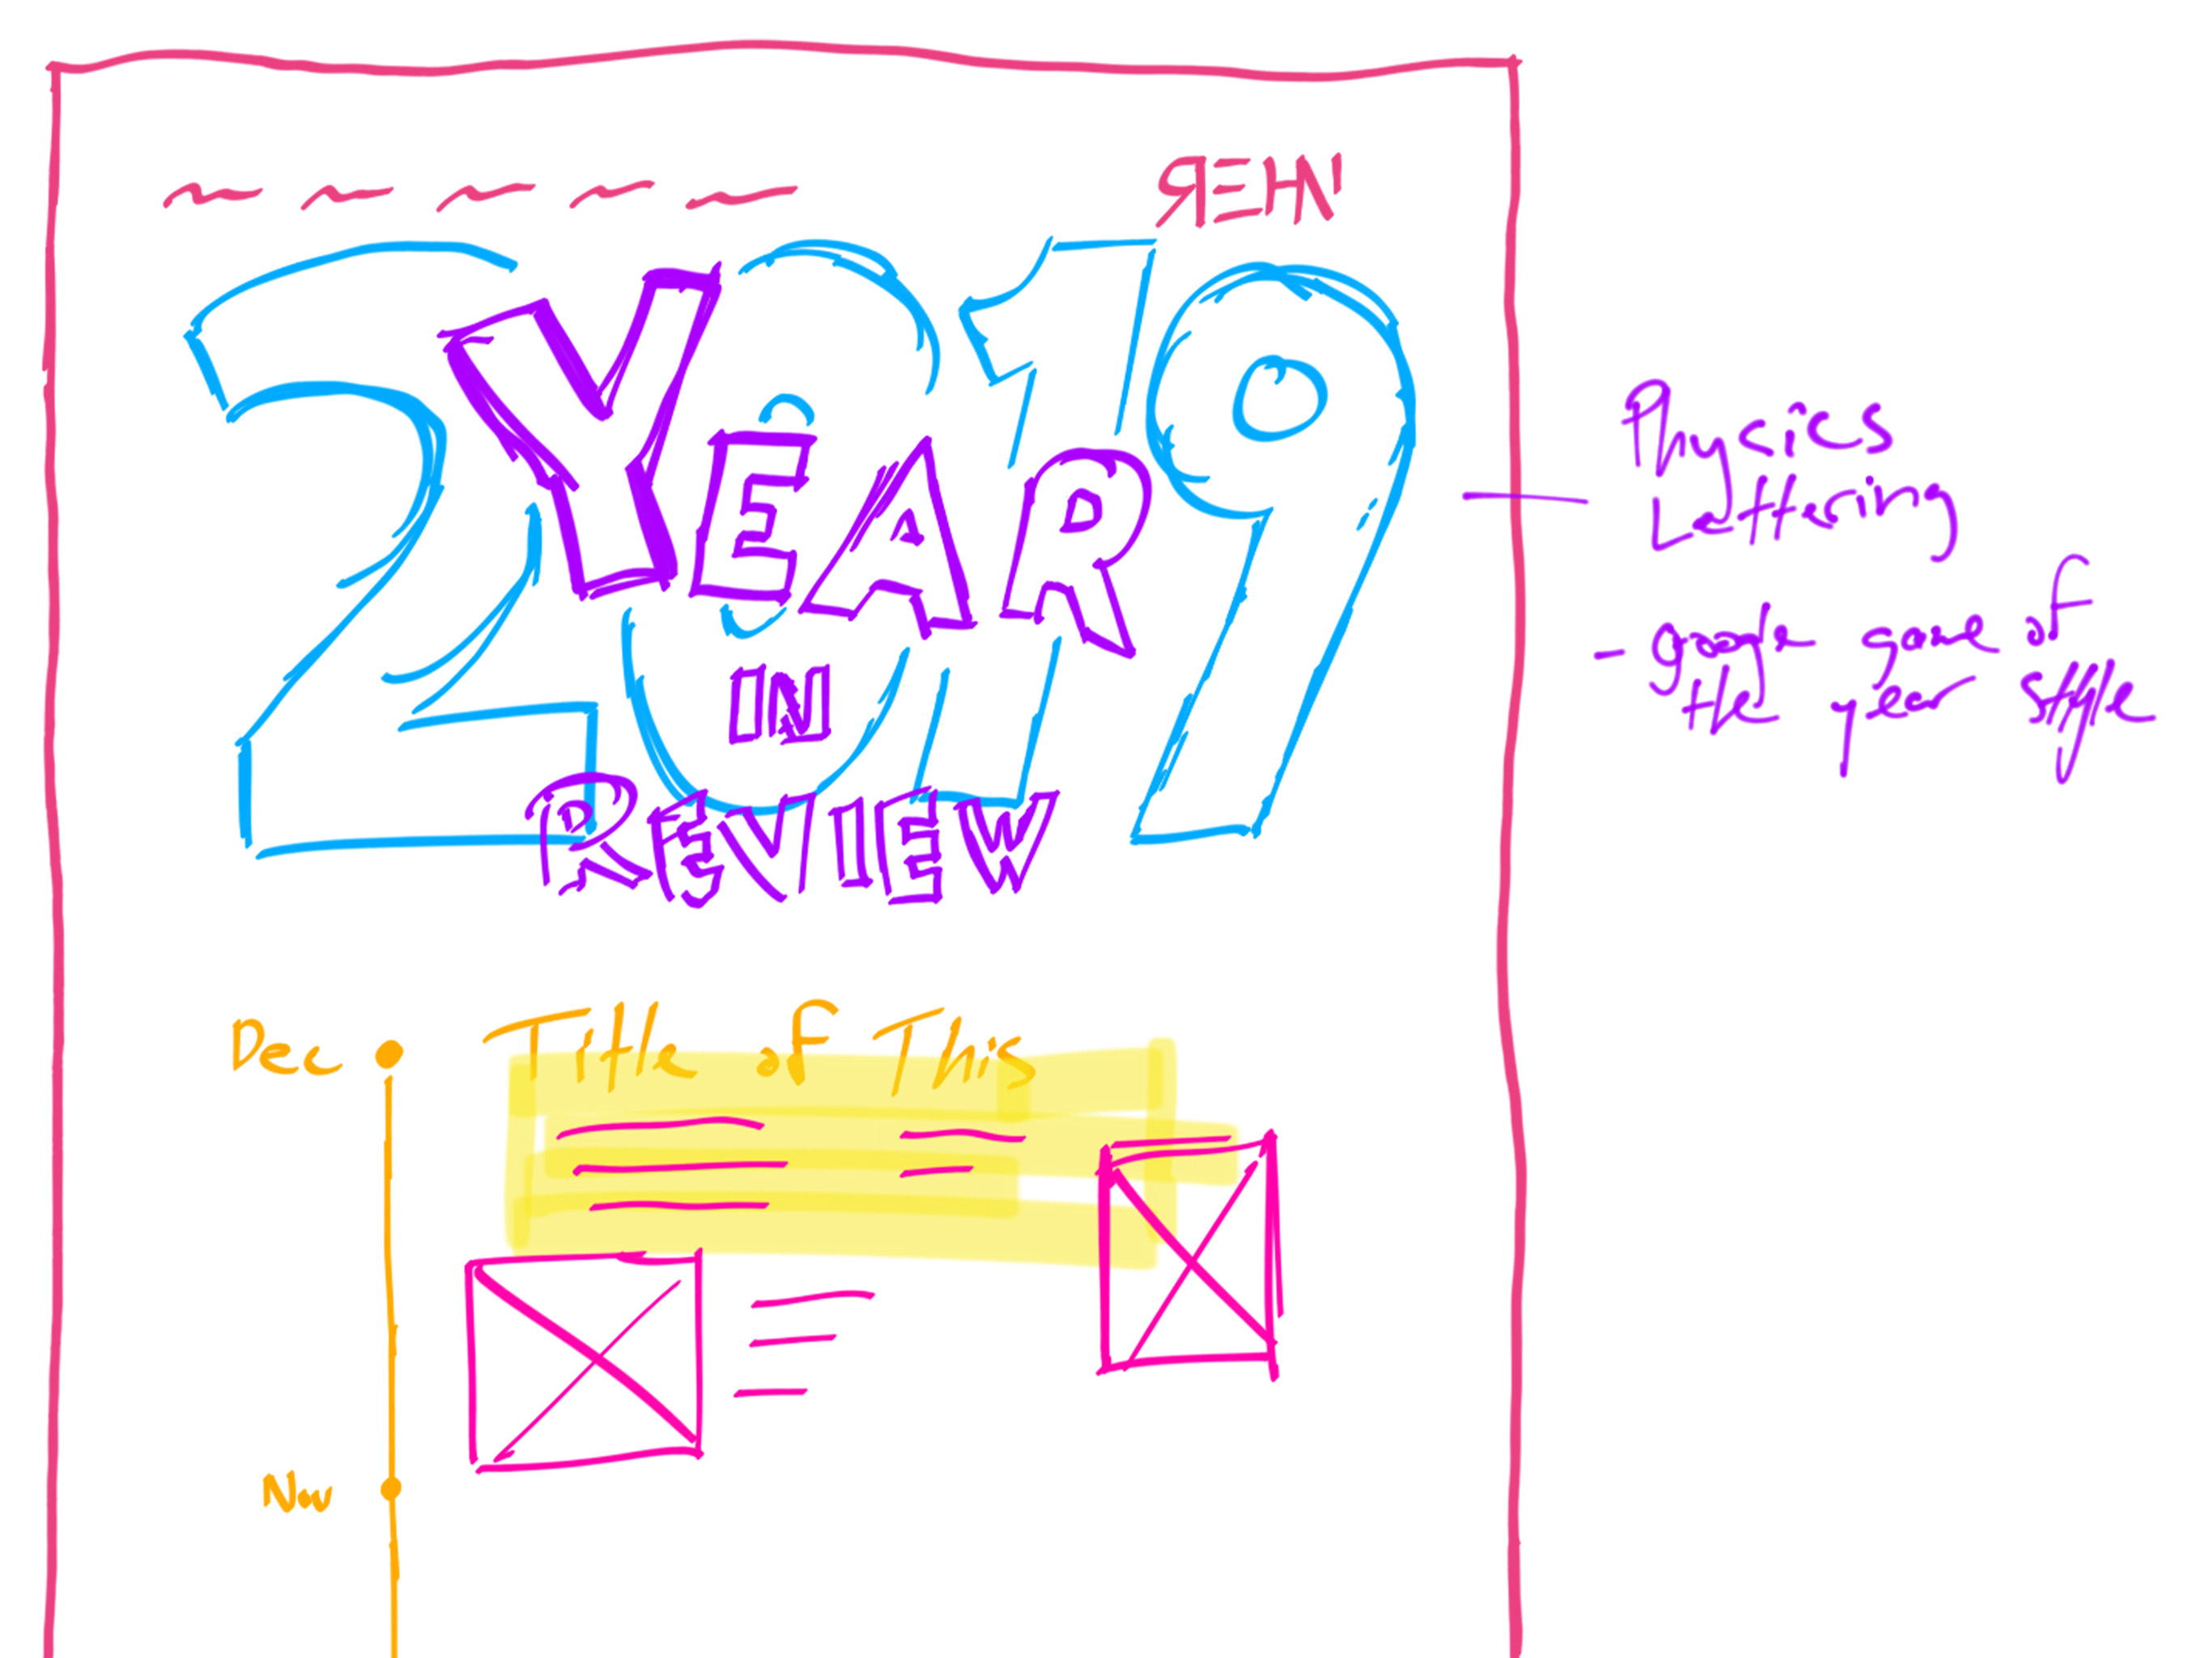 ЯEHN
2019
YEAR
IN
REVIEW
Physics
Lettering
- google game of
the year style
Dec
Title of This
Nov